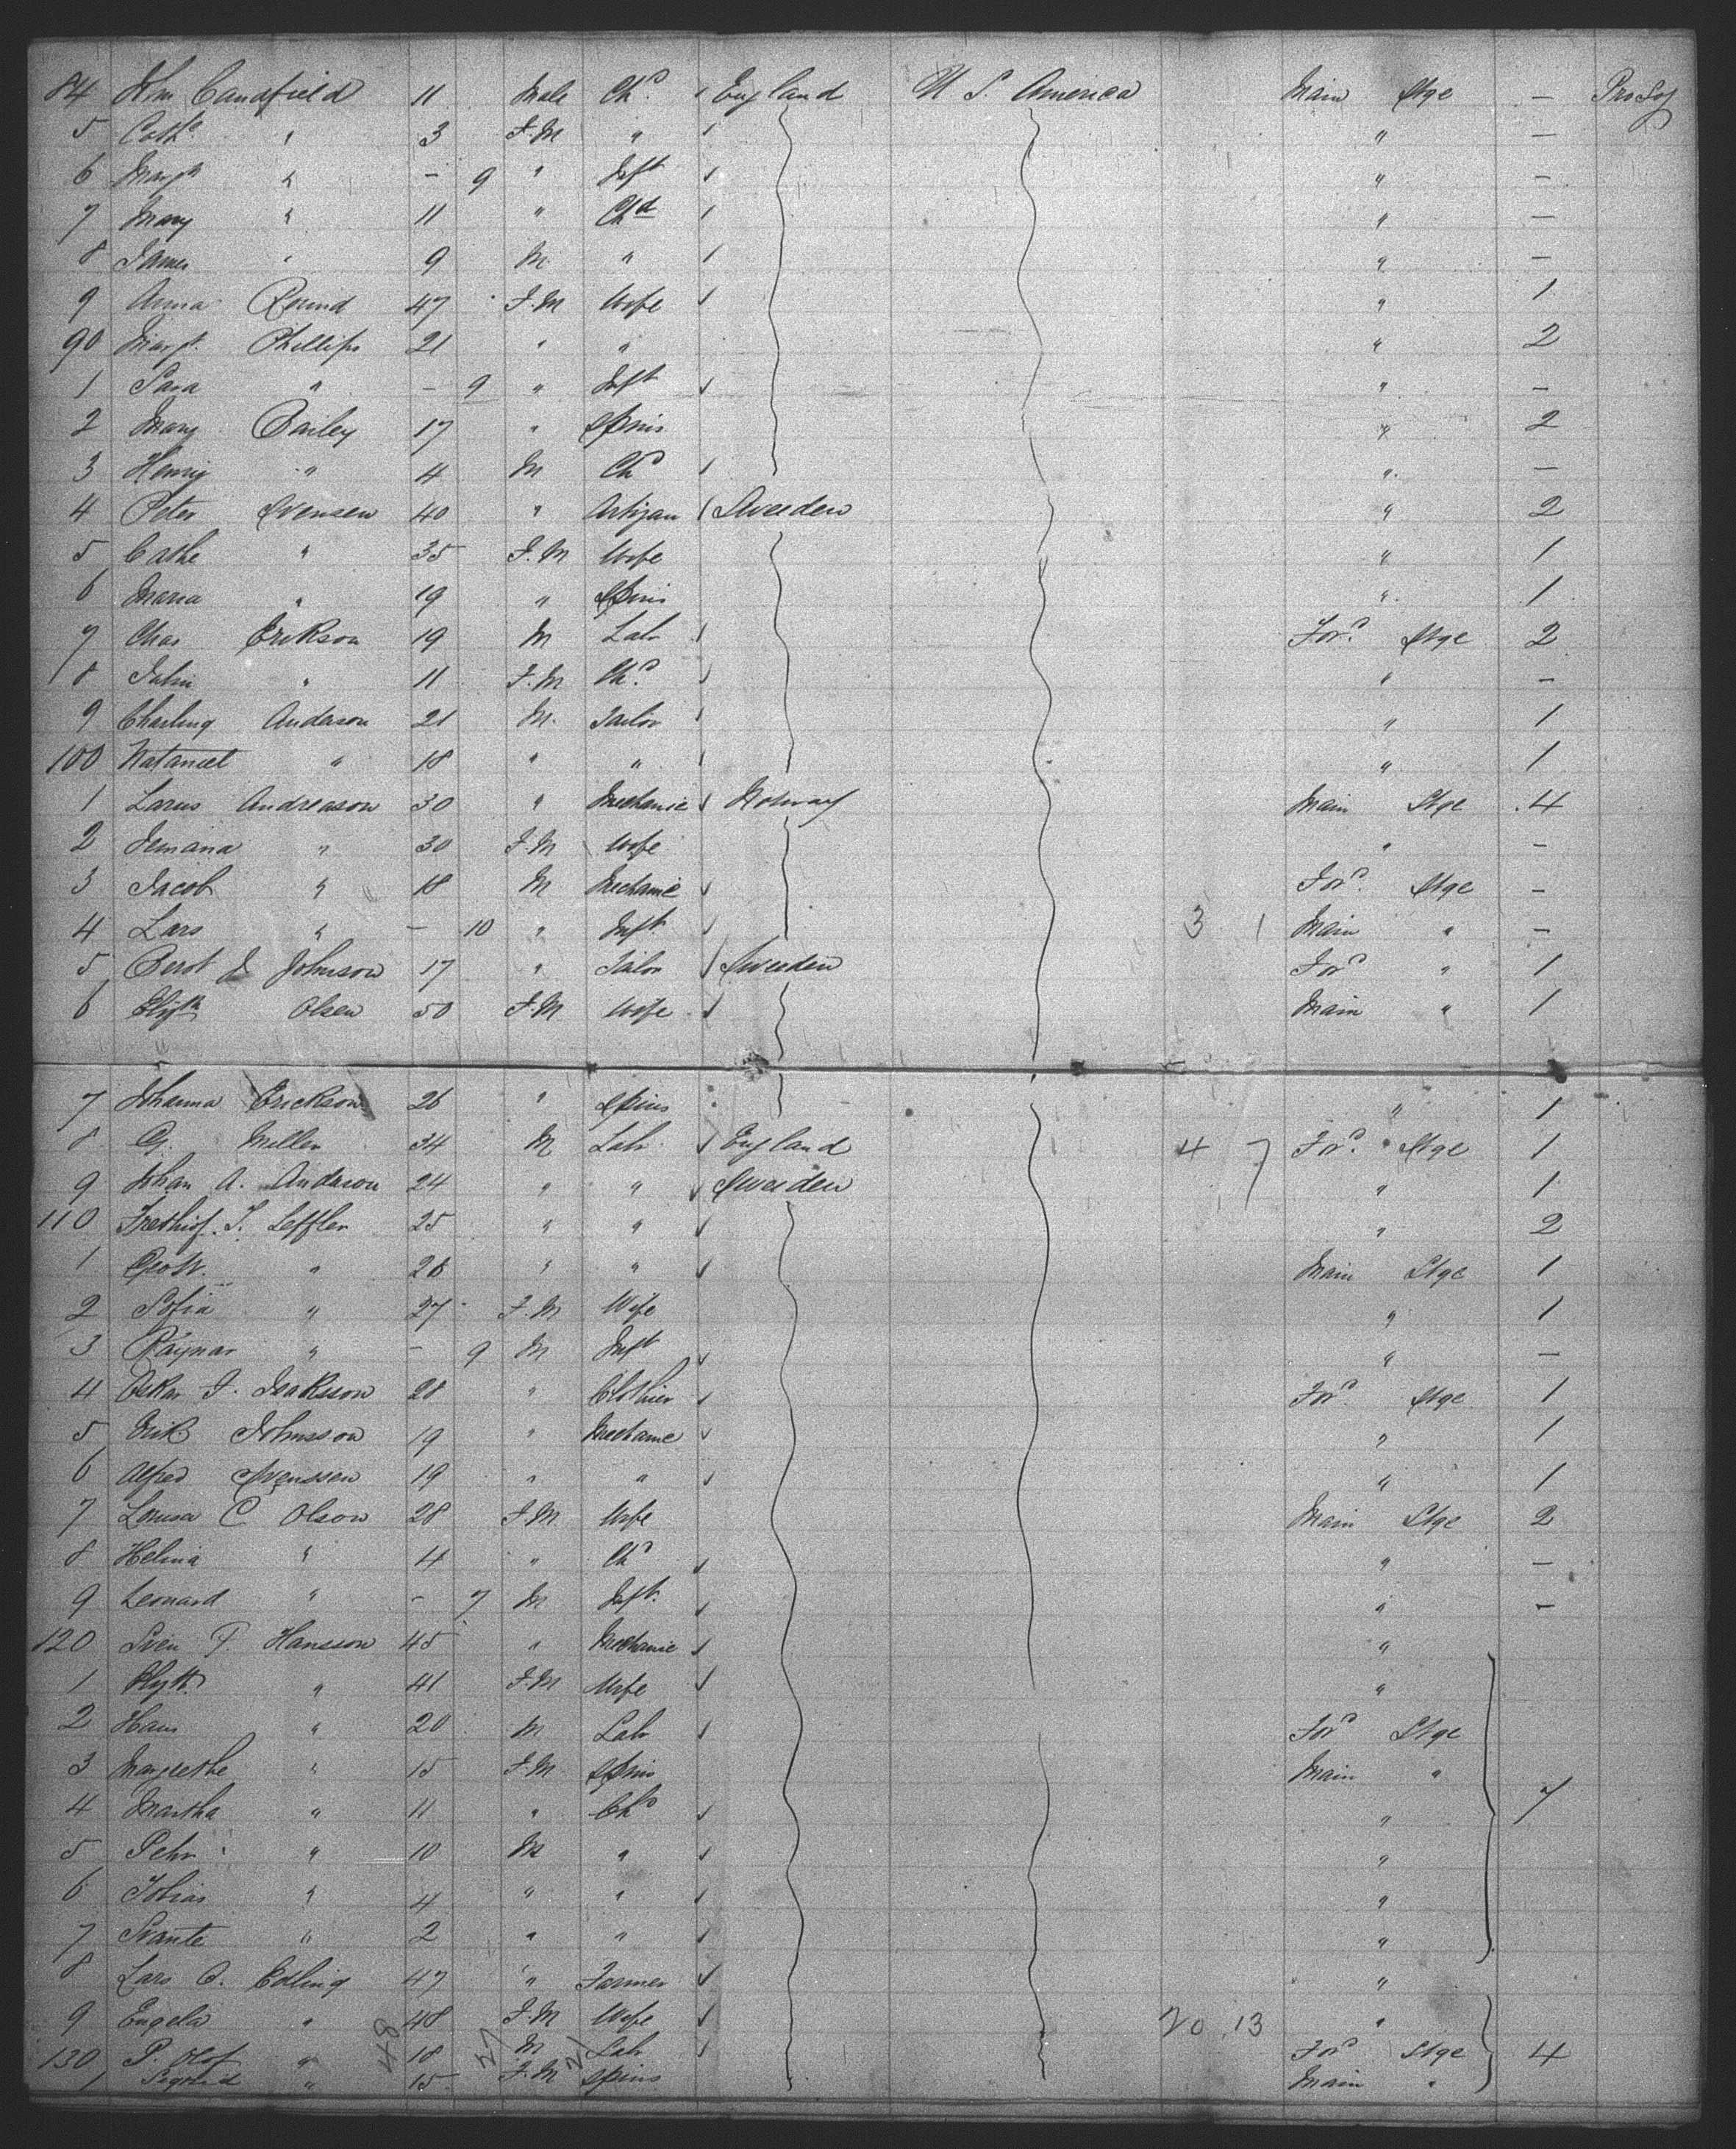 84 Wm Candfield 11 Male Chd England U S. America Main Stge — Pro Soj
5 Cathe " 3 F.M " " —
6 Margt " — 9 " Inft " —
7 Mary " 11 " Chd " —
8 James " 9 M " " —
9 Anna Round 47 F.M Wife " 1
90 Margt. Phillips 21 " " " 2
1 Sara " — 9 " Inft " —
2 Mary Bailey 17 " Spins " 2
3 Henry " 4 M Chd " —
4 Peter Svensen 40 " Artizan Sweeden " 2
5 Cathe " 35 F.M Wife " 1
6 Maria " 19 " Spins " 1
7 Chas Erikson 19 M Labr Ford Stge 2
8 John " 11 F.M Chd " —
9 Charling Anderson 21 M. Tailor " 1
100 Nataniel " 18 " " " 1
1 Larus Andreason 30 " Mechanic Norway Main Stge 4
2 " 30 F.M Wife " —
3 Jacob " 18 M Mechanic Ford Stge —
4 Lars " — 10 " Inft 3 1 Main " —
5 Berot J Johnson 17 " Tailor Sweeden Ford " 1
6 Elizth Olsen 50 F.M Wife Main " 1
7 Johanna Erickson 26 " Spins " 1
8 G. Miller 34 M Labr England 4 7 Ford Stge 1
9 Johan A. Anderson 24 " " Sweeden " 1
110 Frethiof. T. Leffler 25 " " " 2
1 " 26 " " Main Stge 1
2 Sofia " 27 F.M Wife " 1
3 Ragnar " — 9 M Inft " —
4 Oskar F. Isaksson 28 " Clothier Ford Stge 1
5 Erik Johnsson 19 " Mechanic " 1
6 Alfred Svenssen 19 " " " 1
7 Lousa C Olson 28 F.M Wife Main Stge 2
8 Helina " 4 " Chd " —
9 Leonard " — 7 M Inft. " —
120 Sven P. Hansson 45 " Mechanic "
1 Elizth " 41 F.M Wife "
2 Hans " 20 M Labr Ford Stge
3 Margrethe " 15 F.M Spins Main "
4 Martha " 11 " Chd " 7
5 Pehr " 10 M " "
6 Tobias " 4 " " "
7 Svante " 2 " " "
8 Lars O. Edling 47 " Farmer "
9 Engela " 48 F.M Wife 20 13 "
130 P. Olof " 18 M Labr Ford Stge 4
1 Sigrid " 15 F.M Spins Main "
48 27 21